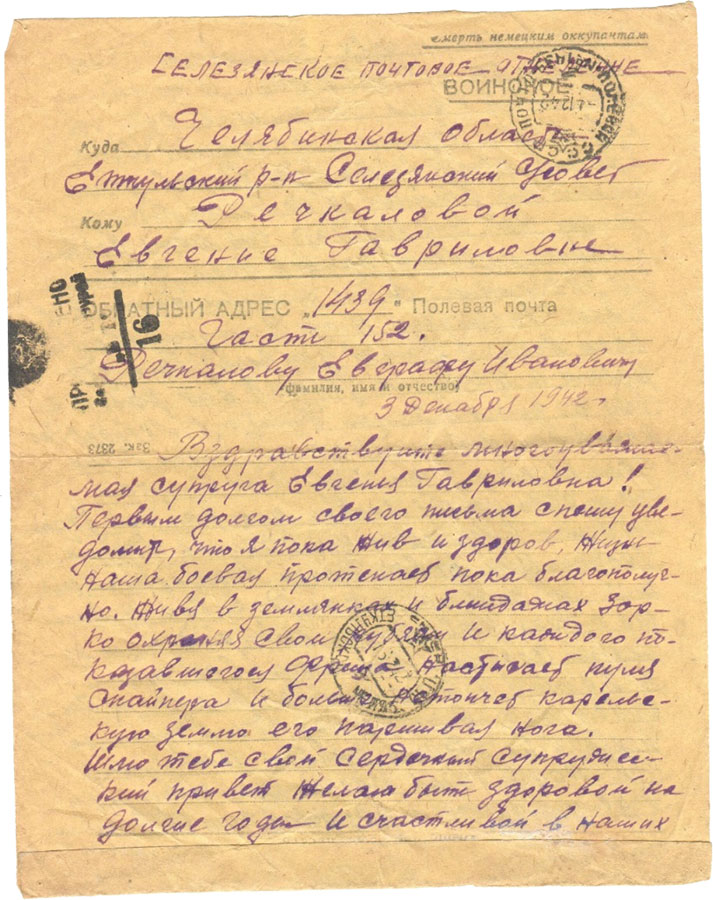 Смерть немецким оккупантам
СЕЛЕЗЯНСКОЕ ПОЧТОВОЕ ОТДЕЛЕНИЕ
ВОИНСКОЕ
Куда Челябинская область
Еткульский р-н Селезянский С/совет
Кому Речкаловой
Евгение Гавриловне
ОБРАТНЫЙ АДРЕС „1439" Полевая почта
Части 152.
Речкалову Евграфу Иванович
фамилия, имя и отчество
3 Декабря 1942 г.
Зак. 2373
Вздравствуите многоуважае-
мая супруга Евгенья Гавриловна!
Первым долгом своего письма спешу уве-
домит, что я пока жив и здоров, Жизн
наша боевая протекает пока благополуч-
но. Живя в землянках и блиндажах Зор-
ко охраняя свои рубежи И каждого по-
казавшегося фрица настигает пуля
Снайпера И больше не топчет карель-
скую землю его паршивая нога.
Шлю тебе свой Сердечный супружес-
кий привет Желаю быть здоровой на
долгие годы И счастливой в наших